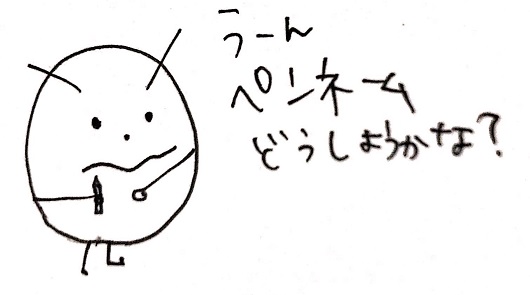 うーん
ペンネーム
どうしようかなぁ?